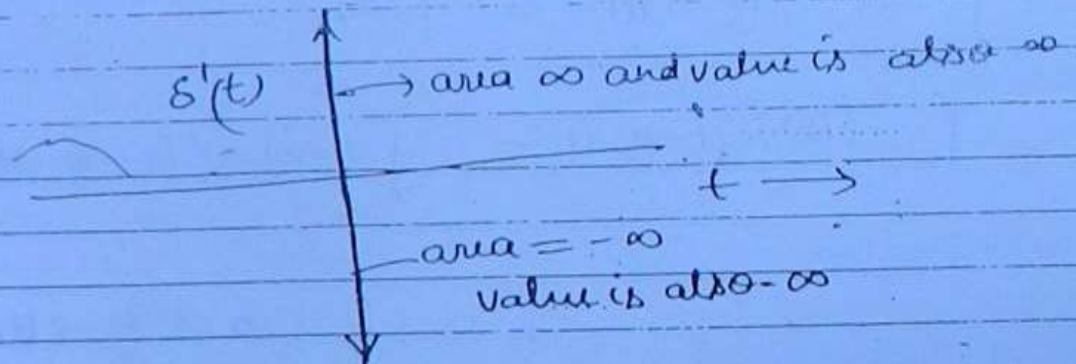 δ'(t) → area ∞ and value is also ∞
t →
area = -∞
value is also -∞